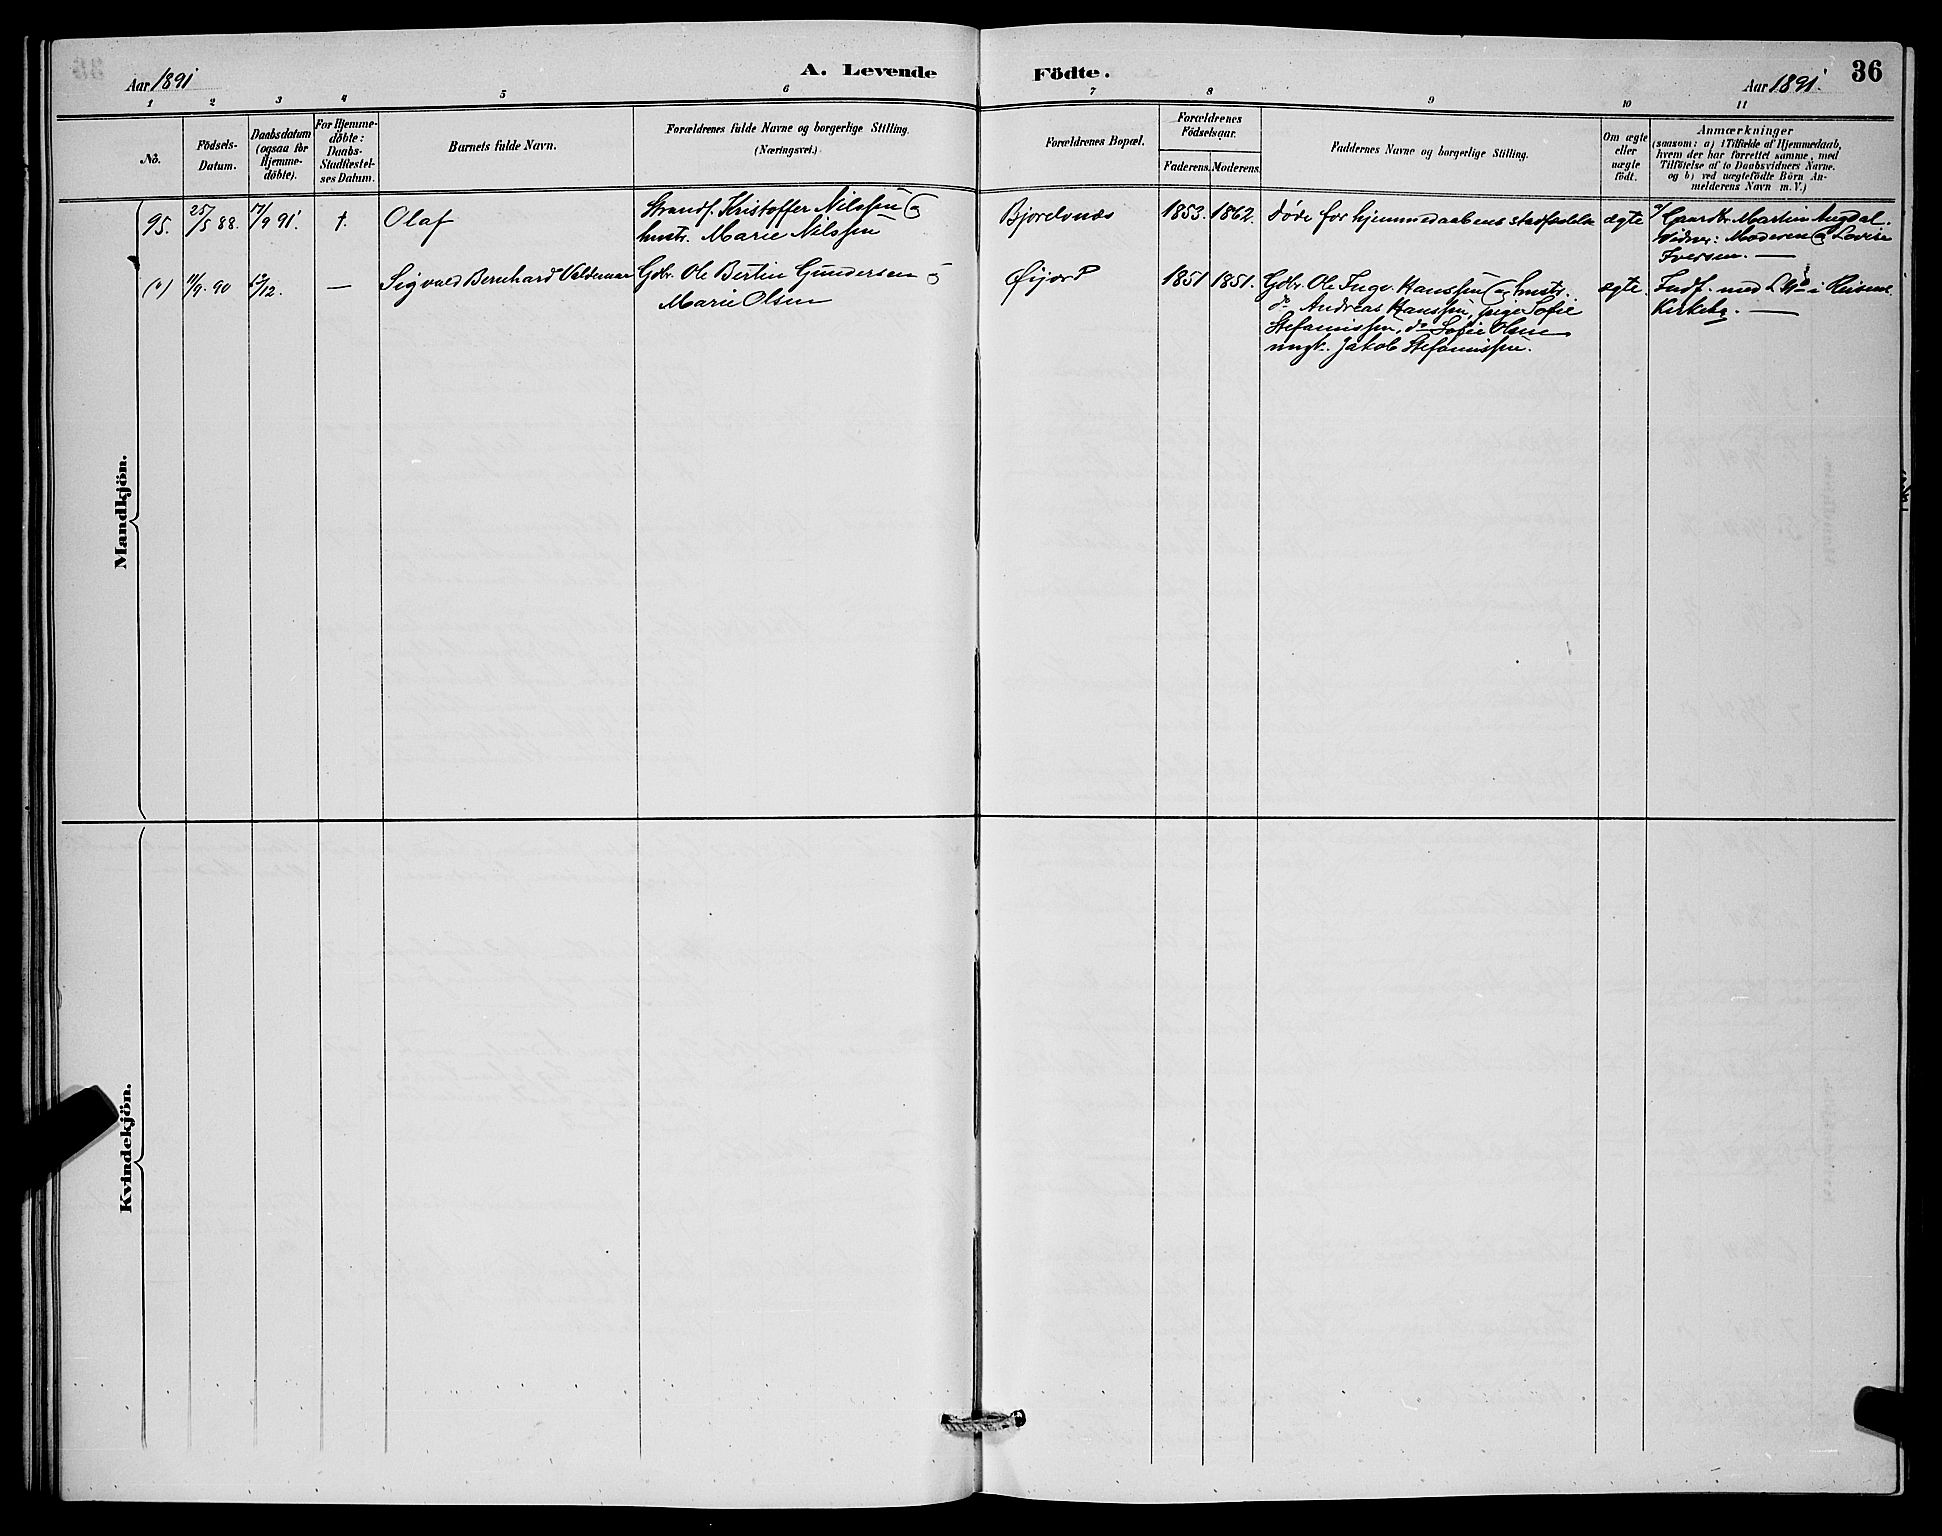 Aar 1891
A. Levende
Födte.
Aar 1891.
36
1 2 3 4 5 6 7 8 9 10 11
No.
Födsels-
Datum.
Daabsdatum
(ogsaa for
Hjemme-
döbte).
For Hjemme-
döbte:
Daabs-
Stadfæstel-
ses Datum.
Barnets fulde Navn.
Forældrenes fulde Navne og borgerlige Stilling.
(Næringsvei.)
Forældrenes Bopæl.
Forældrenes
Födselsaar.
Faderens. Moderens.
Faddernes Navne og borgerlige Stilling.
Om ægte
eller
uægte
födt.
Anmærkninger
(saasom: a) i Tilfælde af Hjemmedaab,
hvem der har forrettet samme, med
Tilföielse af to Daabsvidners Navne.
og b) ved uægtefödte Börn An-
melderens Navn m. V.)
Mandkjön.
95. 25/5 88. 17/9 91. †. Olaf
Strands. Kristoffer Nilssen og
hustr. Marie Nilssen
Bjorelvnæs 1853. 1862. døde før hjemmedaabens stadfæstelse ægte
a/ Gaardbr. Martin Angdal.
Vidner: Moderen og Lovise
Iversen. —
(") 11/9 90 /12. — Sigvald Bernhard Valdemar
Gdbr. Ole Bertin Gundersen o
Marie Olsen
Øijord 1851 1851.
Gdbr. Ole Inge. Hanssen og hustr.
do Andreas Hanssen, pige Sofie
Stefanussen, do Sofie Olsen
ungk. Jakob Stefanussen.
ægte.
Indf. med No i
Kirkebg. —
Kvindekjön.